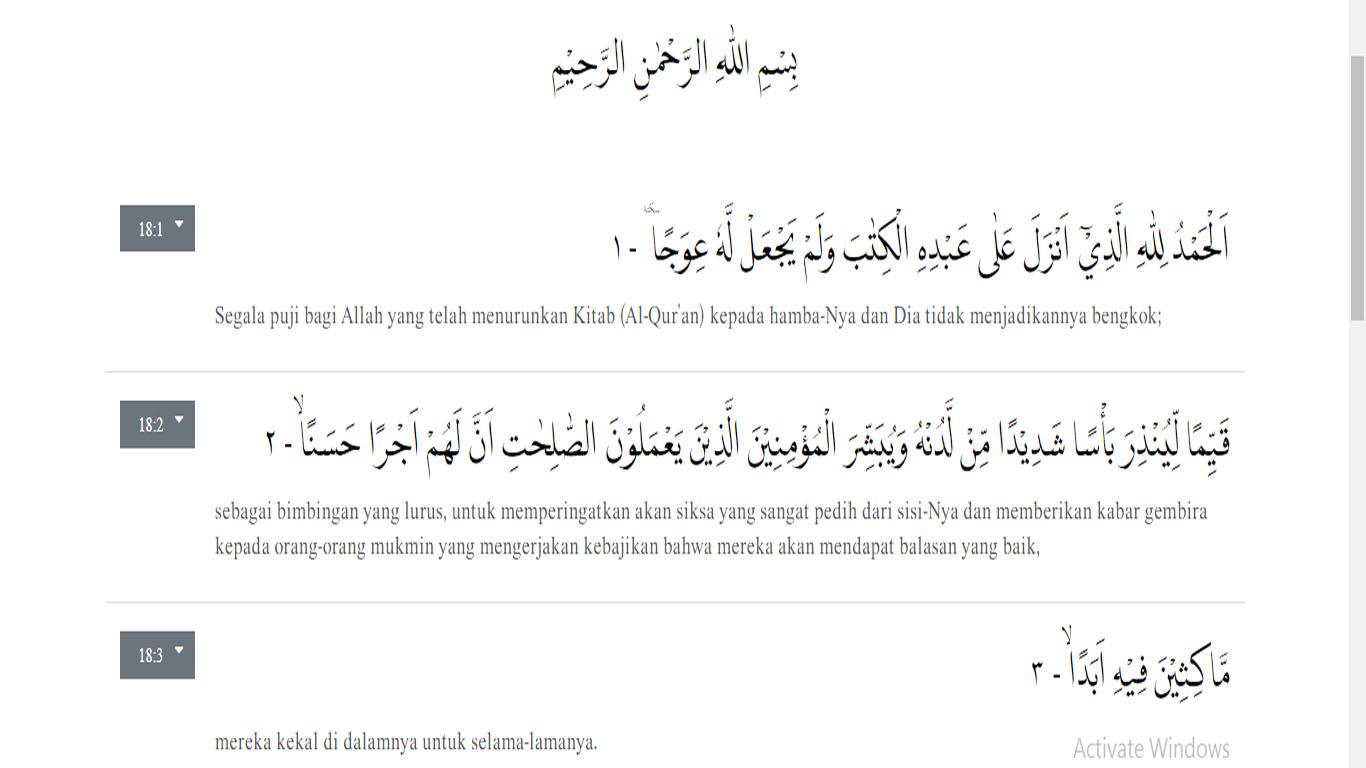 بِسْمِ اللّٰهِ الرَّحْمٰنِ الرَّحِيْمِ
18:1
اَلْحَمْدُ لِلّٰهِ الَّذِيْٓ اَنْزَلَ عَلٰى عَبْدِهِ الْكِتٰبَ وَلَمْ يَجْعَلْ لَّهٗ عِوَجًا ۜ - ١
Segala puji bagi Allah yang telah menurunkan Kitab (Al-Qur'an) kepada hamba-Nya dan Dia tidak menjadikannya bengkok;
18:2
قَيِّمًا لِّيُنْذِرَ بَأْسًا شَدِيْدًا مِّنْ لَّدُنْهُ وَيُبَشِّرَ الْمُؤْمِنِيْنَ الَّذِيْنَ يَعْمَلُوْنَ الصّٰلِحٰتِ اَنَّ لَهُمْ اَجْرًا حَسَنًاۙ - ٢
sebagai bimbingan yang lurus, untuk memperingatkan akan siksa yang sangat pedih dari sisi-Nya dan memberikan kabar gembira
kepada orang-orang mukmin yang mengerjakan kebajikan bahwa mereka akan mendapat balasan yang baik,
18:3
مَّاكِثِيْنَ فِيْهِ اَبَدًاۙ - ٣
mereka kekal di dalamnya untuk selama-lamanya.
Activate Windows